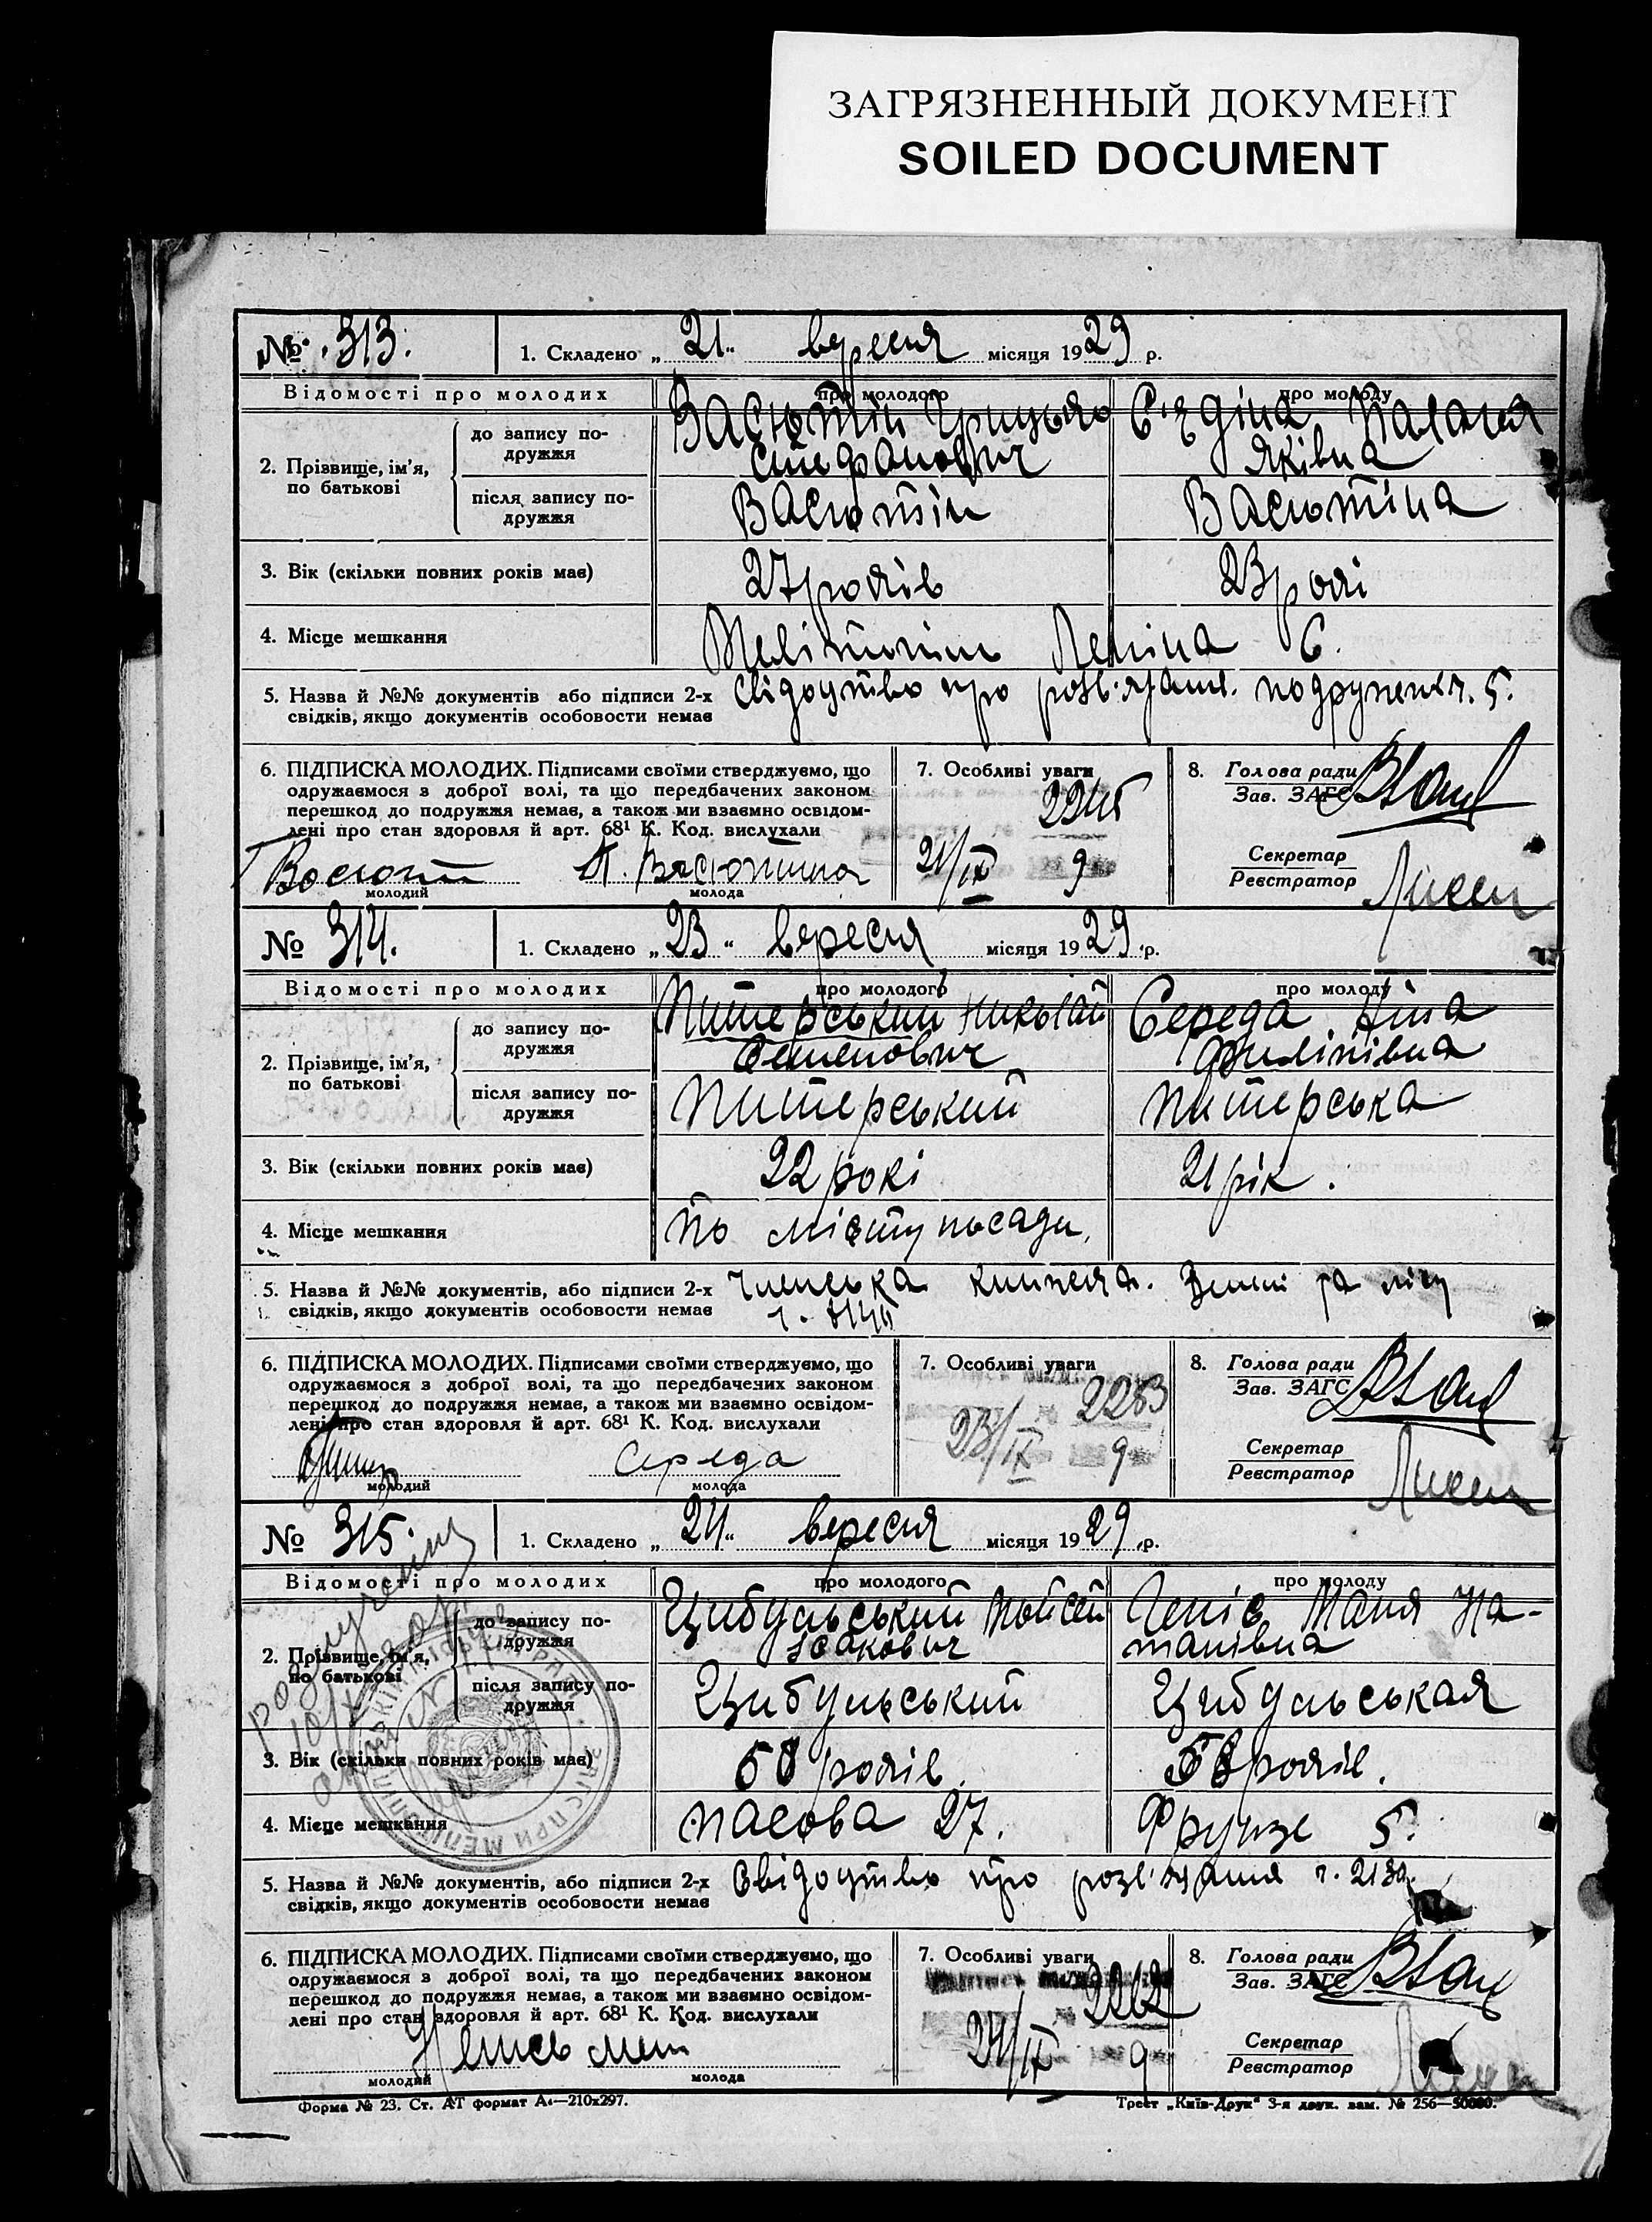 ЗАГРЯЗНЕННЫЙ ДОКУМЕНТ
SOILED DOCUMENT
№ 313. 1. Складено „21“ вересня місяця 1929 р.
Відомості про молодих про молодого про молоду
2. Прізвище, ім'я, по батькові
до запису по-
дружжя
Васютін Грицько
Стефанович
Палагея
Яківна
після запису по-
дружжя
Васютін Васютіна
3. Вік (скільки повних років має) 27 років 23 рокі
4. Місце мешкання Меліт Леніна 6.
5. Назва й №№ документів або підписи 2-х
свідків, якщо документів особовости немає
свідоцтво про розв'язання 5.
6. ПІДПИСКА МОЛОДИХ. Підписами своїми стверджуємо, що
одружаємося з доброї волі, та що передбачених законом
перешкод до подружжя немає, а також ми взаємно освідом-
лені про стан здоровля й арт. 68¹ К. Код. вислухали
Васюті П. Васютина
молодий молода
7. Особливі уваги
21/IX 9
8. Голова ради
Зав. ЗАГС
Секретар
Реєстратор
№ 314. 1. Складено „23“ вересня місяця 1929 р.
Відомості про молодих про молодого про молоду
2. Прізвище, ім'я,
по батькові
до запису по-
дружжя
Питерський Николай
Семенович
Середа Ніна
Филіпівна
після запису по-
дружжя
Питерський Питерська
3. Вік (скільки повних років має) 22 рокі 21 рік.
4. Місце мешкання По місту посади.
5. Назва й №№ документів, або підписи 2-х
свідків, якщо документів особовости немає
Членська книжка. Землі та лісу
6. ПІДПИСКА МОЛОДИХ. Підписами своїми стверджуємо, що
одружаємося з доброї волі, та що передбачених законом
перешкод до подружжя немає, а також ми взаємно освідом-
лені про стан здоровля й арт. 68¹ К. Код. вислухали
Середа
молодий молода
7. Особливі уваги
2263
23/IX 9
8. Голова ради
Зав. ЗАГС
Секретар
Реєстратор
№ 315. 1. Складено „24“ вересня місяця 1929 р.
Відомості про молодих про молодого про молоду
2. Прізвище, ім'я,
по батькові
до запису по-
дружжя
Цибульський Мойсей
Ісакович
Маня На-
танівна
після запису по-
дружжя
Цибульський Цибульськая
3. Вік (скільки повних років має) 58 років. 58 років.
4. Місце мешкання 27. Фрунзе 5.
5. Назва й №№ документів, або підписи 2-х
свідків, якщо документів особовости немає
Свідоцтво про розв'язання ч.
6. ПІДПИСКА МОЛОДИХ. Підписами своїми стверджуємо, що
одружаємося з доброї волі, та що передбачених законом
перешкод до подружжя немає, а також ми взаємно освідом-
лені про стан здоровля й арт. 68¹ К. Код. вислухали
молодий молода
7. Особливі уваги
24/IX 9
8. Голова ради
Зав. ЗАГС
Секретар
Реєстратор
Форма № 23. Ст. АТ формат А4—210x297.
Трест „Київ-Друк“ 3-я друк. зам. № 256—50000.